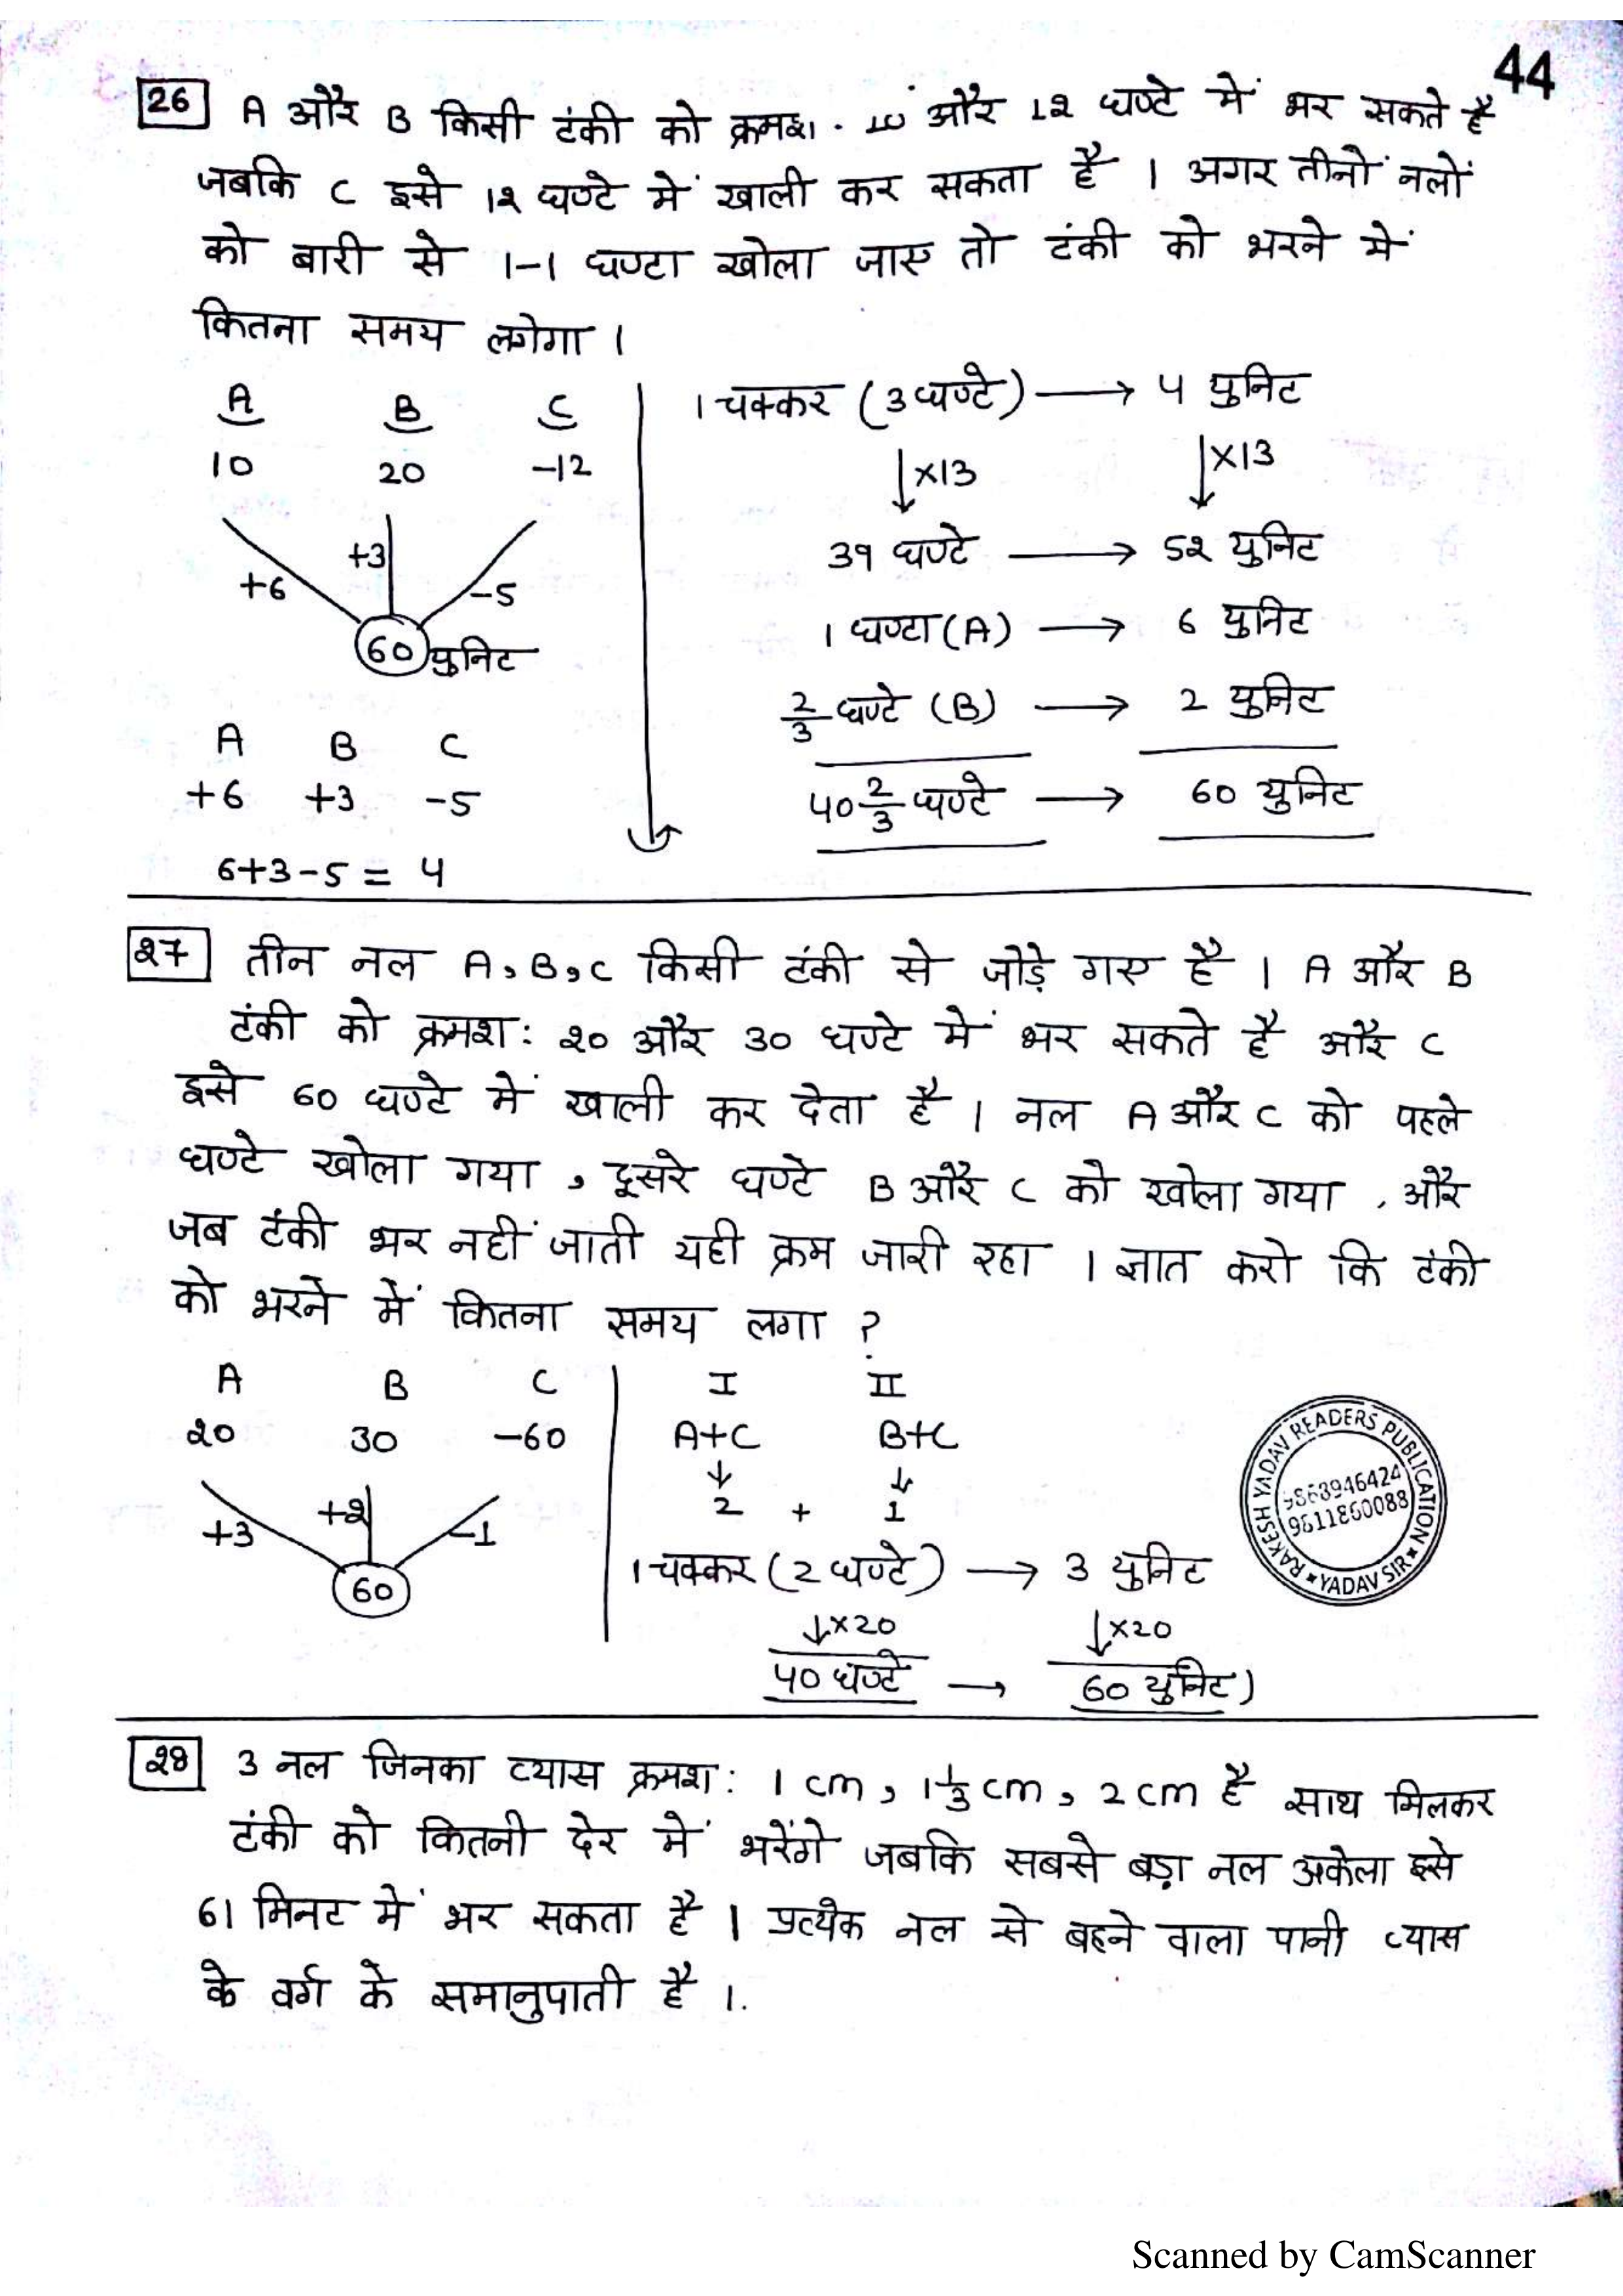 44
26 A और B किसी टंकी को क्रमश. 10 और 12 घण्टे में भर सकते है
जबकि C इसे 12 घण्टे में खाली कर सकता है । अगर तीनों नलों
को बारी से 1-1 घण्टा खोला जाए तो टंकी को भरने में
कितना समय लगेगा ।
A B C
10 20 -12
+6 +3 -5
60 युनिट
A B C
+6 +3 -5
6+3-5 = 4
1 चक्कर (3 घण्टे) → 4 युनिट
↓×13 ↓×13
39 घण्टे → 52 युनिट
1 घण्टा (A) → 6 युनिट
2/3 घण्टे (B) → 2 युनिट
40 2/3 घण्टे → 60 युनिट
27 तीन नल A, B, C किसी टंकी से जोड़े गए है । A और B
टंकी को क्रमश: 20 और 30 घण्टे में भर सकते है और C
इसे 60 घण्टे में खाली कर देता है । नल A और C को पहले
घण्टे खोला गया , दूसरे घण्टे B और C को खोला गया , और
जब टंकी भर नहीं जाती यही क्रम जारी रहा । ज्ञात करो कि टंकी
को भरने में कितना समय लगा ?
A B C
20 30 -60
+3 +2 -1
60
I II
A+C B+C
↓ ↓
2 + 1
1 चक्कर (2 घण्टे) → 3 युनिट
↓×20 ↓×20
40 घण्टे → 60 युनिट)
RAKESH YADAV READERS PUBLICATION
9868946424
9811860088
YADAV SIR
28 3 नल जिनका व्यास क्रमश: 1 cm , 1 1/3 cm , 2 cm है साथ मिलकर
टंकी को कितनी देर में भरेंगे जबकि सबसे बड़ा नल अकेला इसे
61 मिनट में भर सकता है । प्रत्येक नल से बहने वाला पानी व्यास
के वर्ग के समानुपाती है ।.
Scanned by CamScanner